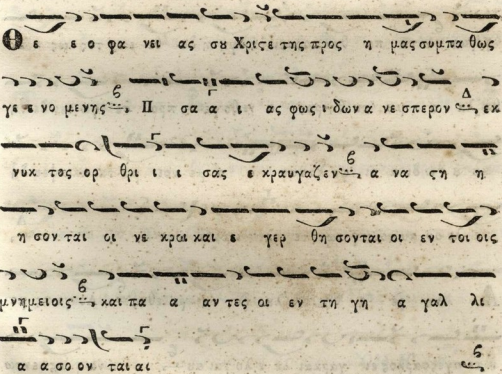 Θ ε ε ο φα νει ας σȣ Χριϛὲ της προς η μας συμπα θως
γε ε νο μενης Π σα α ι ας φως ι δων α νε σπερον Δ εκ
νυκ τος ορ θρι ι ι σας ε κραυγαζεν α να ϛη η
η σον ται οι νε κροι και ε γερ θη σονται οι εν τοι οις
μνημειοις και πα α αν τες οι εν τη γη α γαλ λι
α α σο ον ται αι